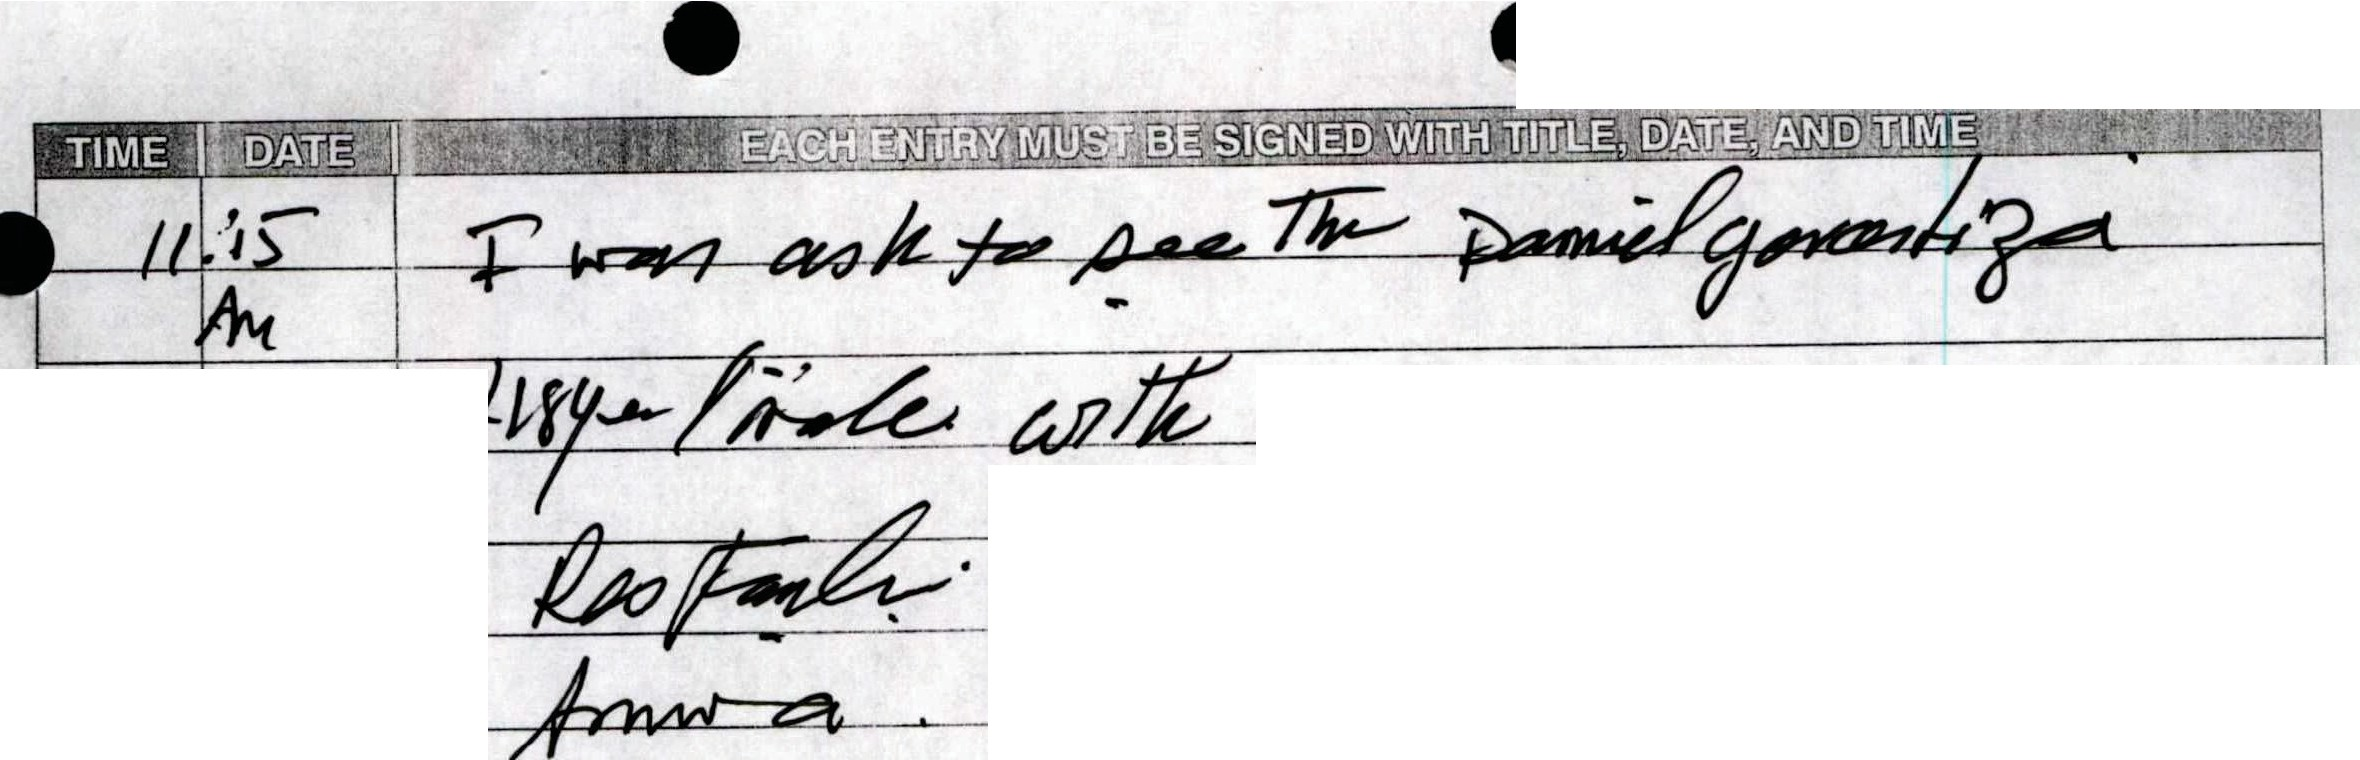 TIME DATE EACH ENTRY MUST BE SIGNED WITH TITLE, DATE, AND TIME
11:15 I was ask to see The Daniel gorostiza
AM
18 year male with